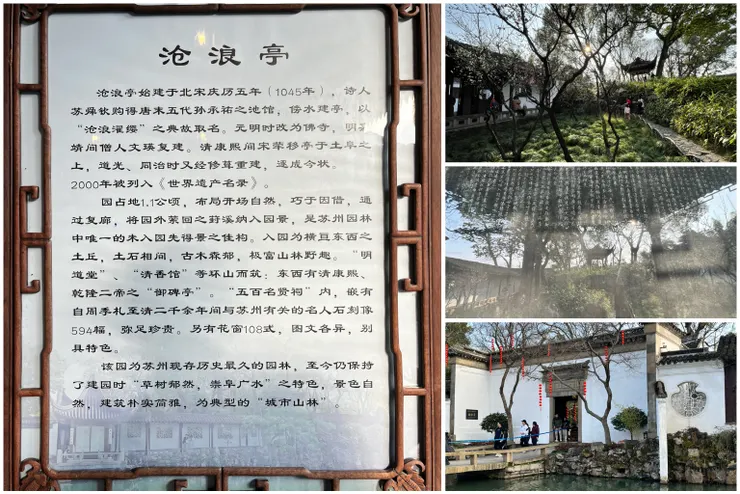 沧浪亭
沧浪亭始建于北宋庆历五年（1045年），诗人
苏舜钦购得唐末五代孙永祐之池馆，傍水建亭，以
“沧浪濯缨”之典故取名。元明时改为佛寺，明嘉
靖间僧人文瑛复建。清康熙间宋荦移亭于土阜之
上，道光、同治时又经修葺重建，遂成今状。
2000年被列入《世界遗产名录》。
园占地1.1公顷，布局开场自然，巧于因借，通
过复廊，将园外萦回之葑溪纳入园景，是苏州园林
中唯一的未入园先得景之佳构。入园为横亘东西之
土丘，土石相间，古木森郁，极富山林野趣。“明
道堂”、“清香馆”等环山而筑；东西有清康熙、
乾隆二帝之“御碑亭”。“五百名贤祠”内，嵌有
自周季札至清二千余年间与苏州有关的名人石刻像
594幅，弥足珍贵。另有花窗108式，图文各异，别
具特色。
该园为苏州现存历史最久的园林，至今仍保持
了建园时“草树郁然，崇阜广水”之特色，景色自
然，建筑朴实简雅，为典型的“城市山林”。